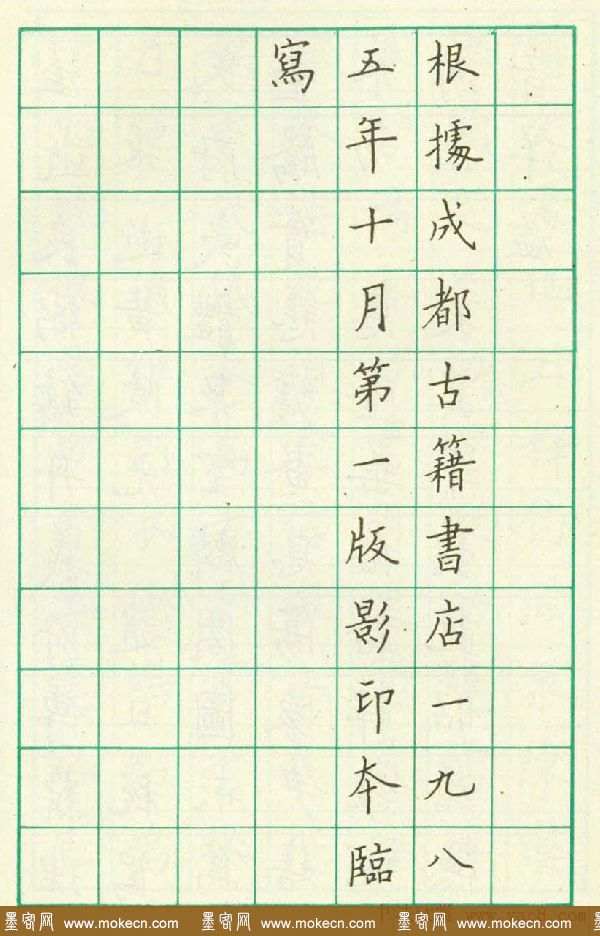 根據成都古籍書店一九八
五年十月第一版影印本臨
寫
墨客网 www.mokecn.com 墨客网 www.mokecn.com 墨客网 www.mokecn.com